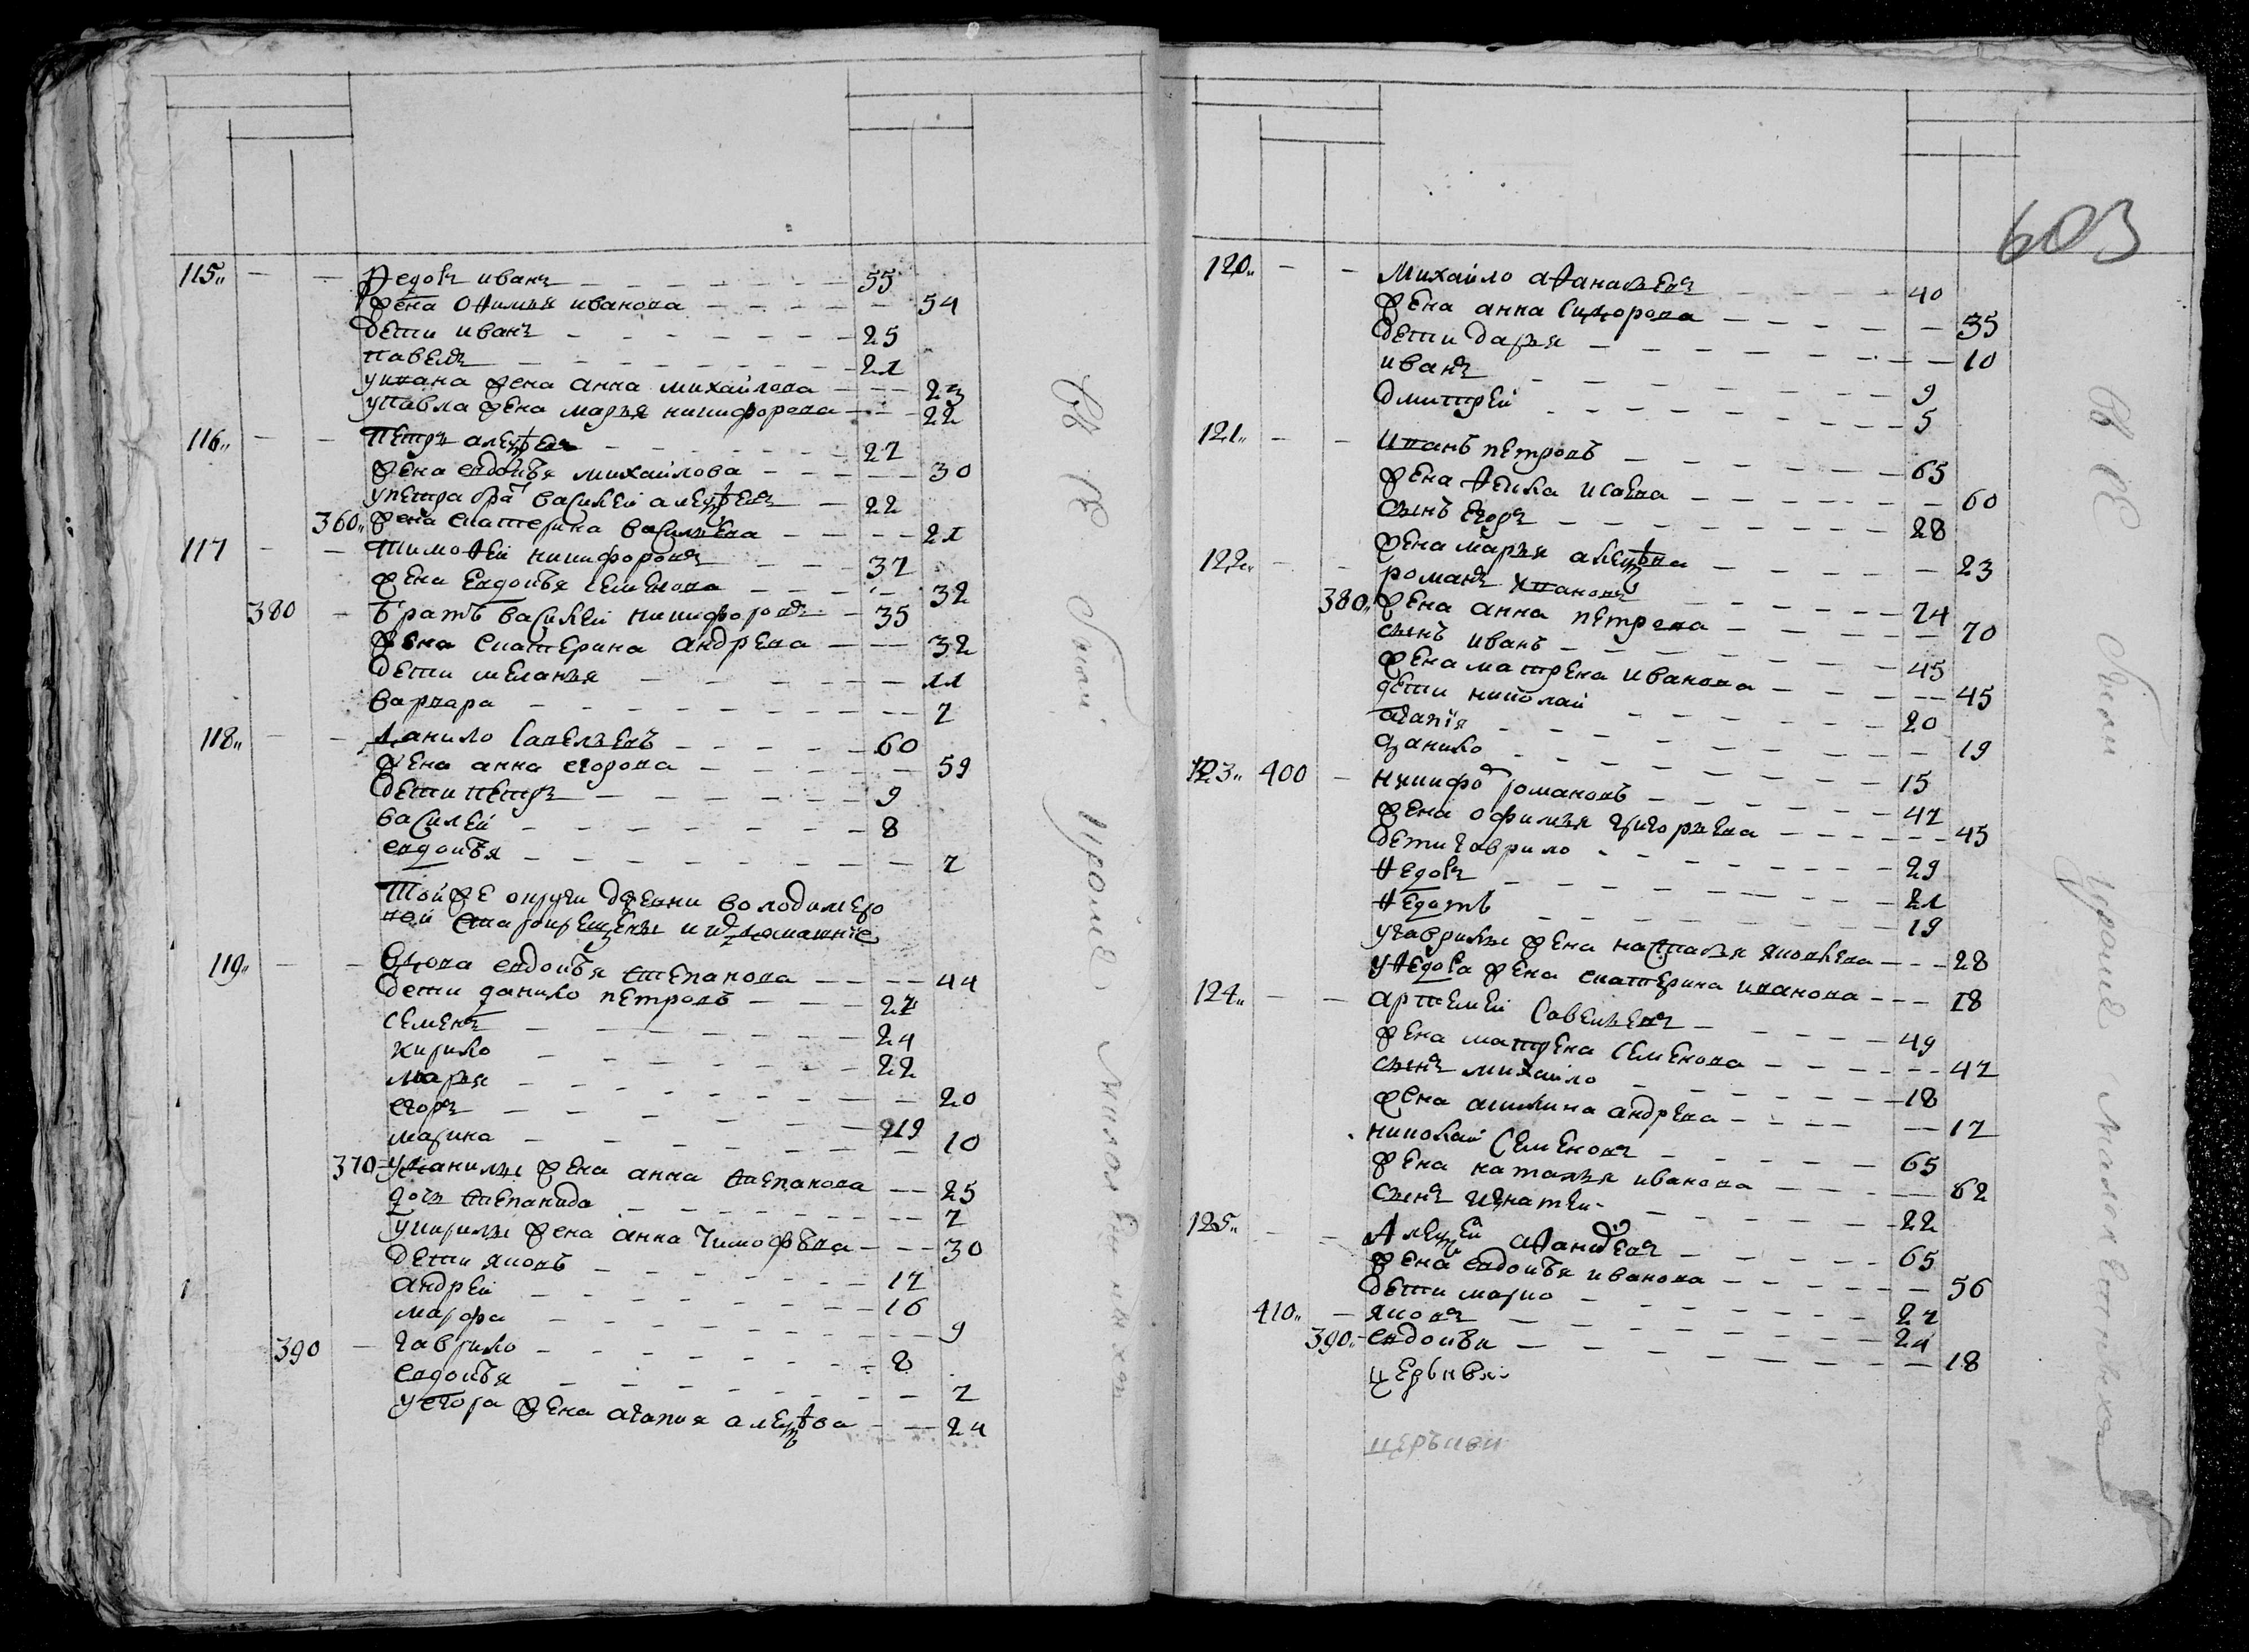 115 — — Ѳедоръ иванъ — 55
жена Ѳимья иванова — 54
дети иванъ — 25
павелъ — 21
уивана жена анна михайлова — 23
упавла жена марья никифорова — 22
116 — — Петръ алеѯѣевъ — 27
жена евдокѣя михайлова — 30
упетра братъ василей алеѯѣевъ — 22
360 жена екатерина васильева — 21
117 — — Тимоѳей никифоровъ — 37
жена Евдокѣя семенова — 32
380 — братъ василей никифоровъ — 35
жена екатерина андрева — 32
дети меланья — 11
варвара — 7
118 — — Данило савельевъ — 60
жена анна егорова — 59
дети петръ — 9
василей — 8
евдокѣя — 7
Той же округи древни володимеро
вой
119 — — Вдова евдокѣя степанова — 44
дети данило петровъ — 27
семенъ — 24
кирило — 22
марья — 20
егоръ — 19
марина — 10
370 уданилы жена анна степанова — 25
дочь степанида — 7
укирилы жена анна тимофѣва — 30
дети яковъ — 17
андрей — 16
марфа — 9
390 — гаврило — 8
евдокѣя — 7
уегора жена агапия алеѯѣва — 24
603
120 — — Михайло аѳанасьевъ — 40
жена анна сидорова — 35
дети дарья — 10
иванъ — 9
дмитрей — 5
121 — — Иванъ петровъ — 65
жена Ѳекла исаева — 60
сынъ егоръ — 28
жена марья алеѯѣва — 23
122 — — романъ ивановъ — 74
380 жена анна петрова — 70
сынъ иванъ — 45
жена матрена иванова — 45
дети николай — 20
агапія — 19
данило — 15
123 400 — никифоръ романовъ — 47
жена офимья григорьева — 45
дети гаврило — 29
Ѳедоръ — 21
Ѳедотъ — 19
угаврилы жена настасья яковлева — 28
уѲедора жена екатерина иванова — 18
124 — — артемей савельевъ — 49
жена матрена семенова — 47
сынъ михайло — 18
жена акилина андрева — 17
николай семеновъ — 65
жена наталья иванова — 62
сынъ игнатей — 22
125 — — Алеѯей аѳанасьевъ — 65
жена евдокѣя иванова — 56
дети марко — 27
410 — яковъ — 24
390 евдокѣя — 18
церькви
церькви